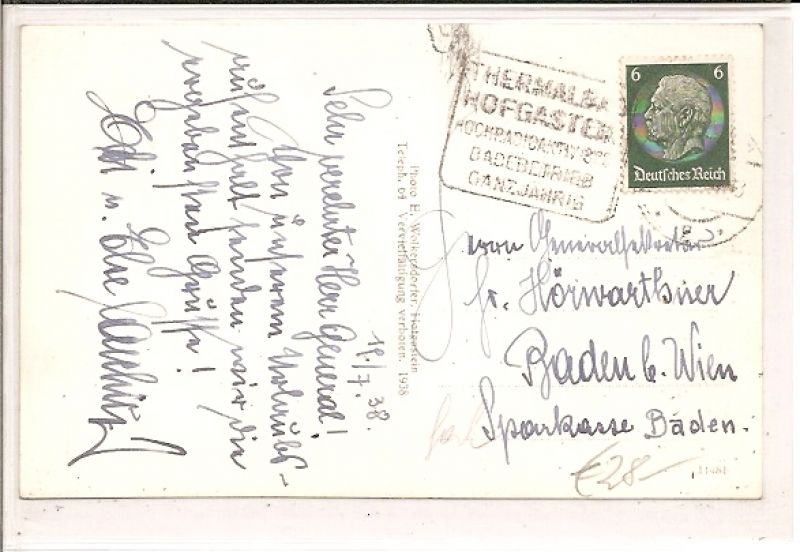 18./7. 38.
Sehr verehrter Herr General!
Von unserem Urlaubs-
aufenthalt senden wir die
ergebensten Grüsse!
u. Else
Photo F. Wolkersdorfer, Hofgastein
Teleph. 64 Vervielfältigung verboten. 1938
THERMALBAD
HOFGASTEIN
HOCHRADIOAKTIV
BADEBETRIEB
GANZJÄHRIG
6 6
Deutsches Reich
Herrn Generalsekretär
Fr. Hörwarthner
Baden b. Wien
Sparkasse Baden.
€28-